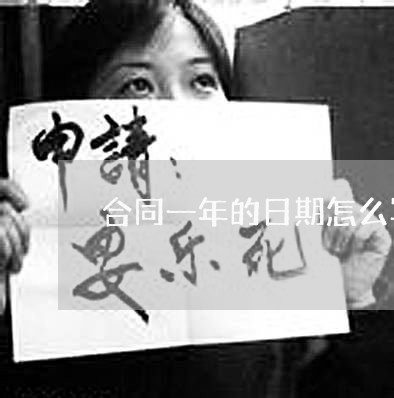 申請：
合同一年的日期怎么
要乐死